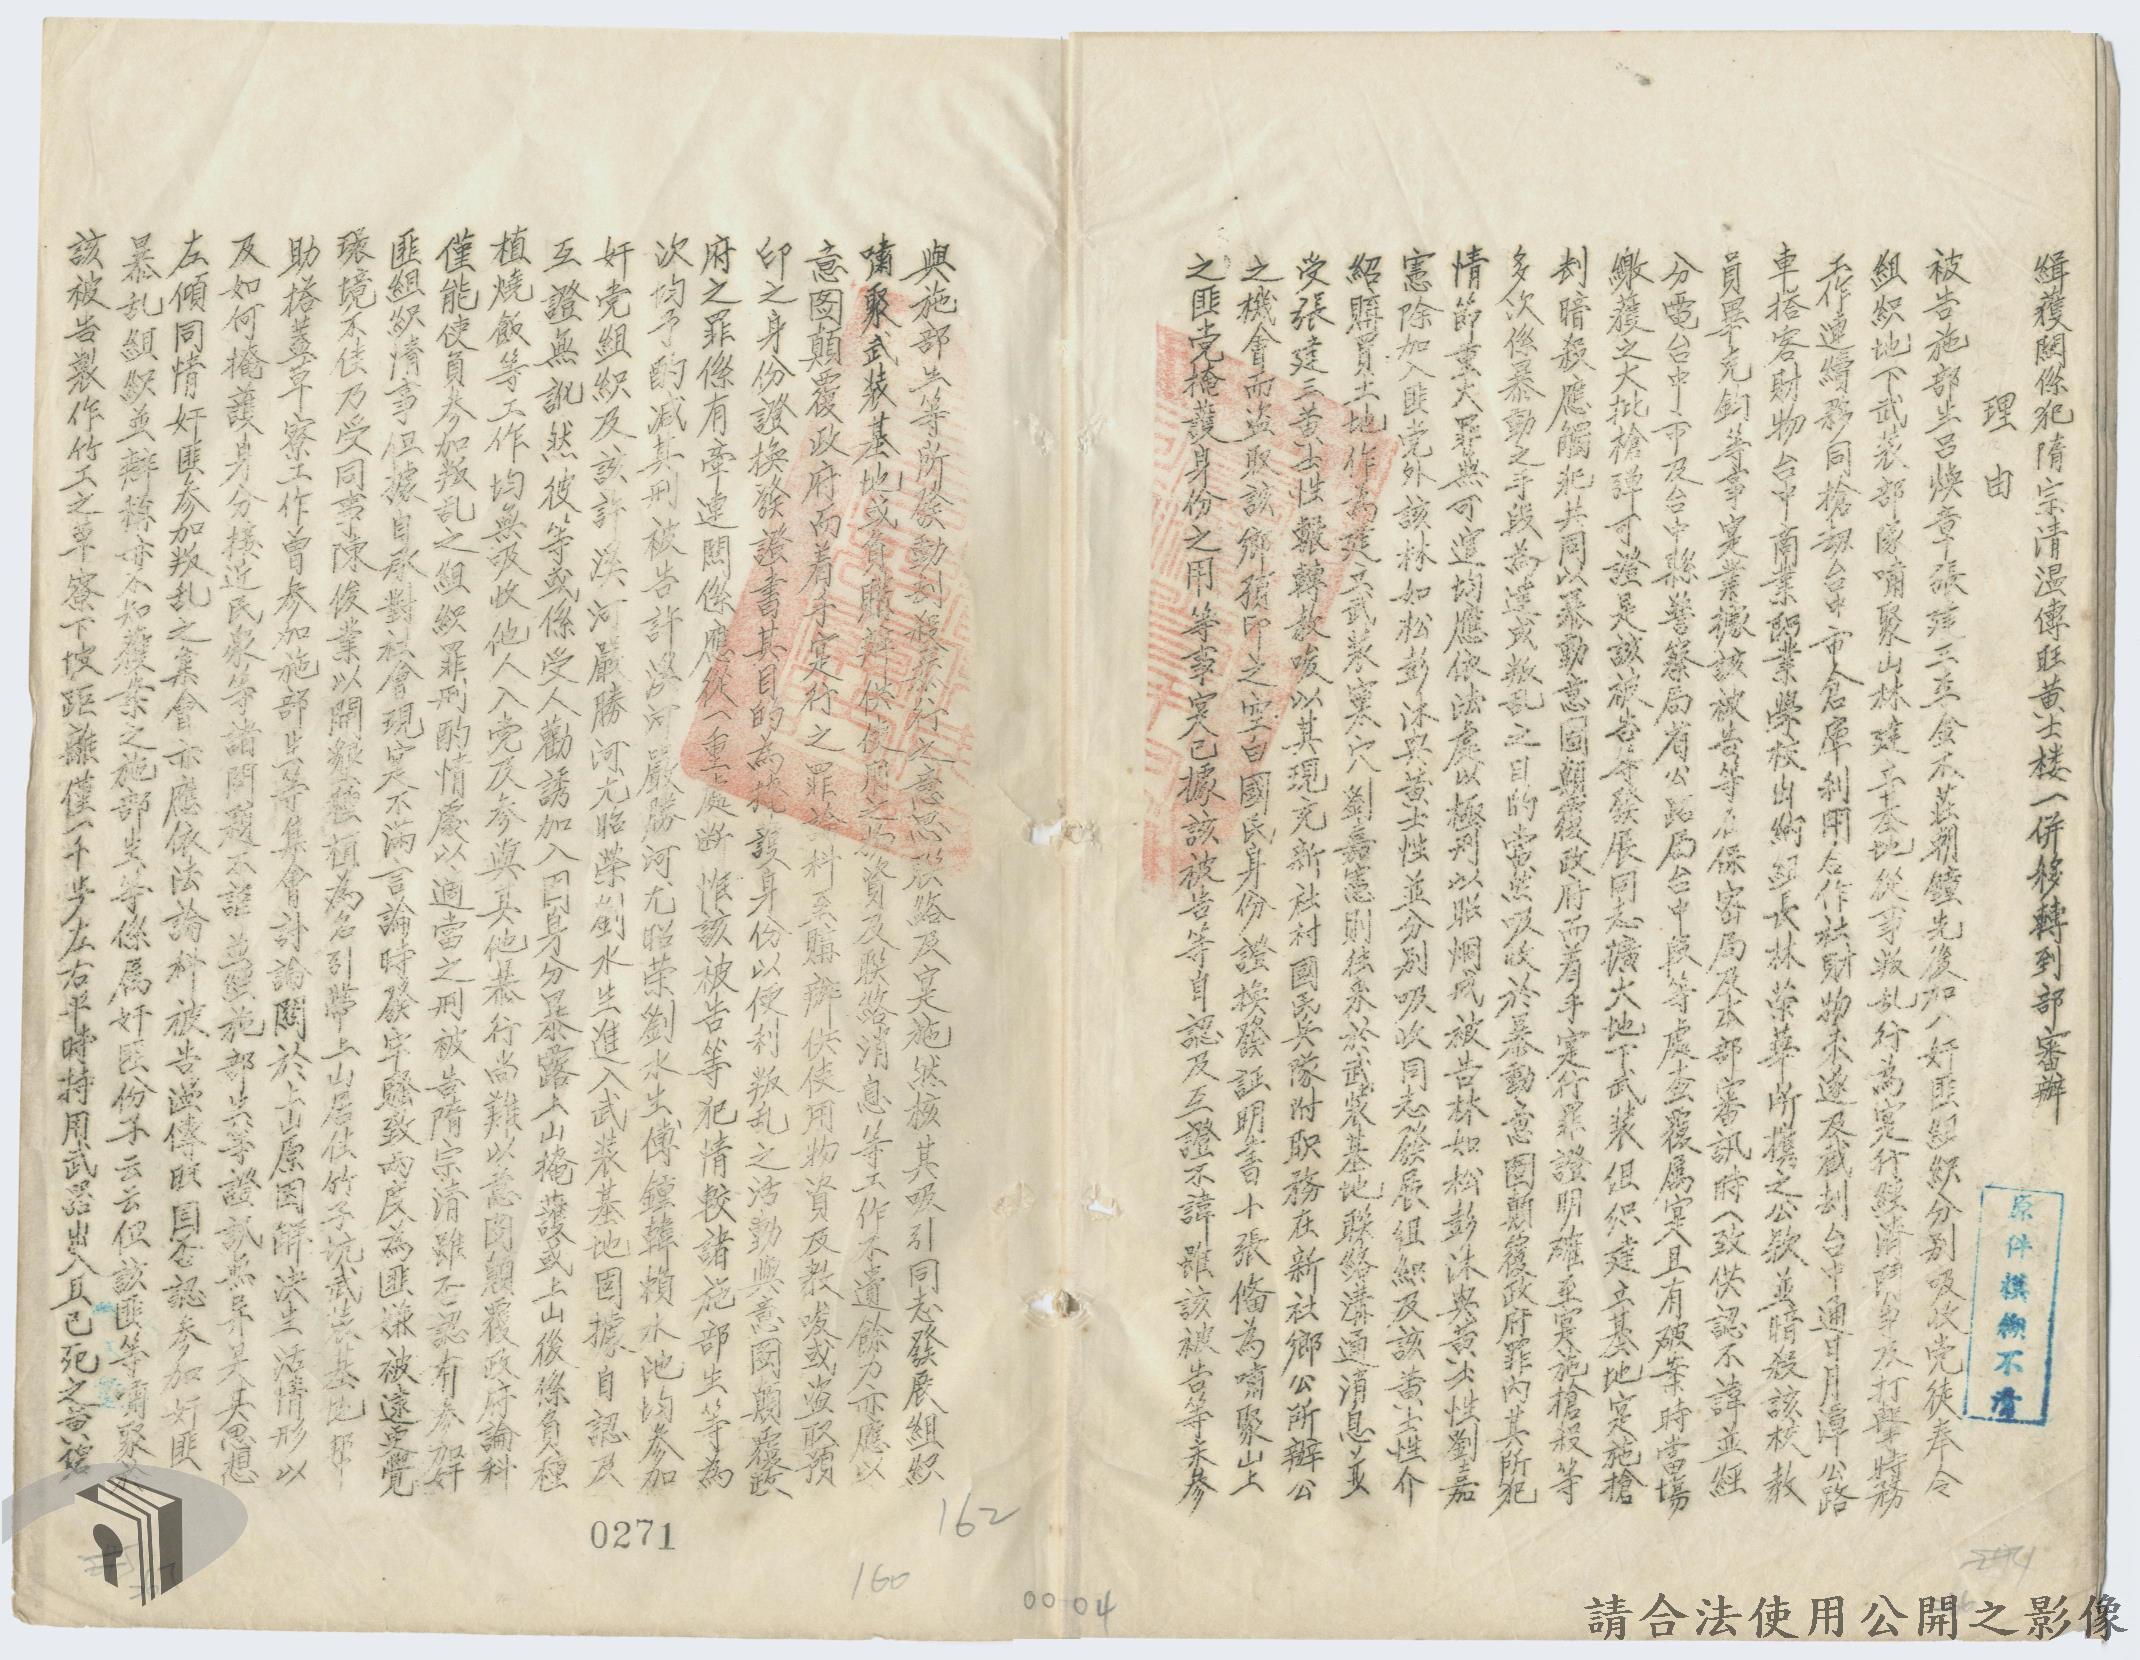 緝獲關係犯隋宗清温傳旺黃士樓一併移轉到部審辦
理由
被告施部生呂煥章張建三李金木莊朝鐘先後加入奸匪組織分別吸收党徒奉令
組織地下武装部隊嘯聚山林建立基地從事叛乱行為寔行經濟鬥争及打擊特務
工作連續夥同搶刼台中市人倉庫利用合作社財物未遂及截刼台中通日月潭公路
車搭客財物台中商業职業學校出納組長林荣華所携之公欵並暗殺該校教
員畢克鈞等事寔業據該被告等在保密局及本部審訊時一致供認不諱並經
分電台中市及台中縣警察局省公路局台中段等處查覆属寔且有破案時當場
繳獲之大批槍彈可證是該被告等發展同志擴大地下武装组织建立基地寔施搶
刼暗殺應觸犯共同以暴動意圖顛覆政府而着手寔行罪證明確至寔施搶殺等
多次係暴動之手段為達成叛乱之目的當然吸收於暴動意圖顛覆政府罪內其所犯
情節重大罪無可逭均應依法處以極刑以昭烱戒被告林如松彭沐興黃士性劉嘉
憲除加入匪党外該林如松彭沐興黃士性並分别吸收同志發展組織及該黃士性介
紹購買土地作為建立武装寨穴劉嘉憲則往來於武装基地联絡溝通消息並
受張建三黃士性輾轉教唆以其現充新社村國民兵隊附职務在新社鄉公所辦公
之機會而盗取該鄉預印之空白國民身份證換發証明書十張俻為嘯聚山上
之匪党掩護身份之用等事寔已據該被告等自認及互證不諱雖該被告等未參
與施部生等所發動刼殺暴行之意思联絡及寔施然核其吸引同志發展組織
嘯聚武装基地或負購辦供使用之物資及联絡消息等工作不遺餘力亦應以
意圖顛覆政府而着手寔行之罪論科至購辦供使用物資及教唆或盗取預
印之身份證換發證書其目的為掩護身份以便利叛乱之活動與意圖顛覆政
府之罪係有牽連關係應從一重處断惟該被告等犯情較諸施部生等為
次均予酌减其刑被告許溪河嚴勝河尤昭荣劉水生傅鐘韓賴水池均參加
奸党組织及該許溪河嚴勝河尤昭榮劉水生進入武装基地固據自認及
互證無訛然彼等或係受人勸誘加入因身分暴露上山掩護或上山後係負種
植燒飯等工作均無吸收他人入党及参與其他暴行尚難以意圖顛覆政府論科
僅能使負參加叛乱之組織罪刑酌情處以適當之刑被告隋宗清雖否認有參加奸
匪組織情事但據自承對社會現寔不滿言論時發牢騷致两度為匪嫌被遠更覺
環境不佳乃受同事陳俊業以開墾種植為名引帶上山居住竹子坑武装基地帮
助搭蓋草寮工作曾參加施部生等集會討論關於上山原因解决生活情形以
及如何掩護身分接近民衆等諸問題不諱並經施部生等證訊無异是其思想
左傾同情奸匪參加叛乱之集會亦應依法論科被告温傳旺固否認參加奸匪
暴乱組織並辯稱亦不知獲案之施部生等係属奸匪份子云云但該匪等嘯聚於
該被告製作竹工之草寮下坡距離僅一千步左右平時持用武器出入且已死之黃
原件模糊不清
0271
162
160
00-04
請合法使用公開之影像